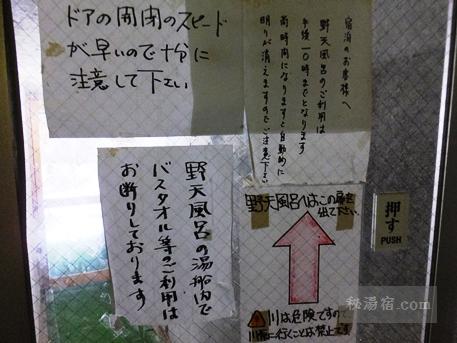 ドアの開閉のスピード
が早いので十分に
注意して下さい
宿泊のお客様へ
野天風呂のご利用は
午後一〇時までとなります
尚時間になりますと自動的に
明りが消えますのでご注意下さい
野天風呂の湯船内で
バスタオル等のご利用は
お断りしております
野天風呂へはこの扉を
出て下さい
川は危険ですので
川に行くことは禁止です
押す
PUSH
秘湯宿.com